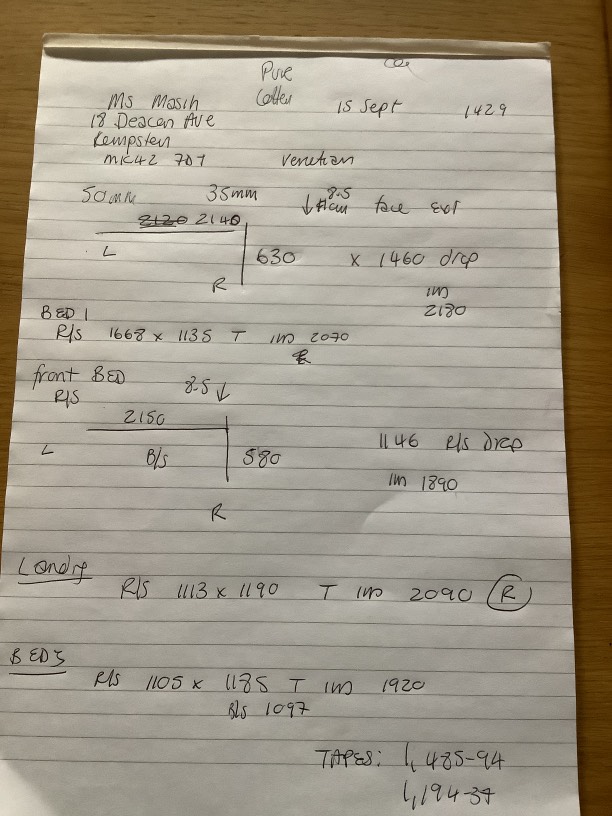 Pure
Cotton
Ms Masih 15 Sept 1429
18 Deacon Ave
Kempston
MK42 7DT Venetian
50mm 35mm ↓ 8.5 face
2120 2140
L
630 x 1460 drop
R
IM
2180
BED 1
R/S 1668 x 1135 T IM 2070
front BED 8.5 ↓
R/S
2150
L B/S 580 1146 R/S drop
IM 1890
R
Landg
R/S 1113 x 1190 T IM 2090 R
BED 3
R/S 1105 x 1185 T IM 1920
B/S 1097
TAPES: 1,485-94
1,194-37